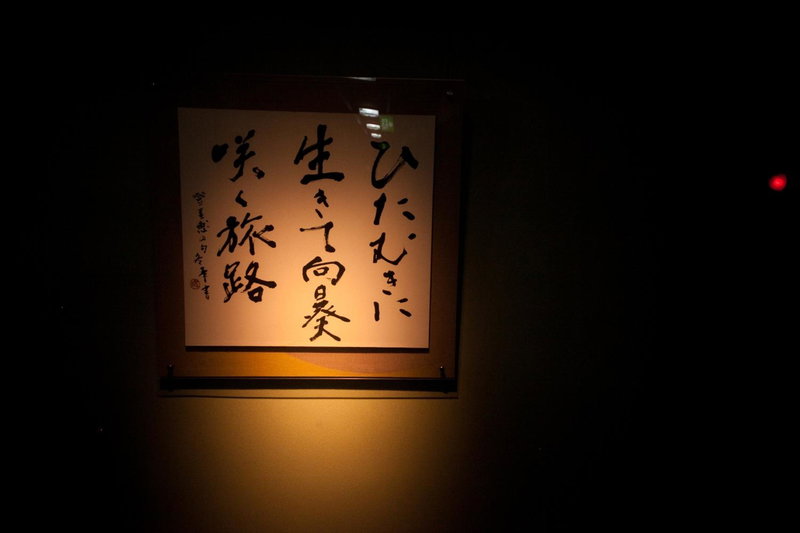 ひたむきに
生きて向日葵
咲く旅路